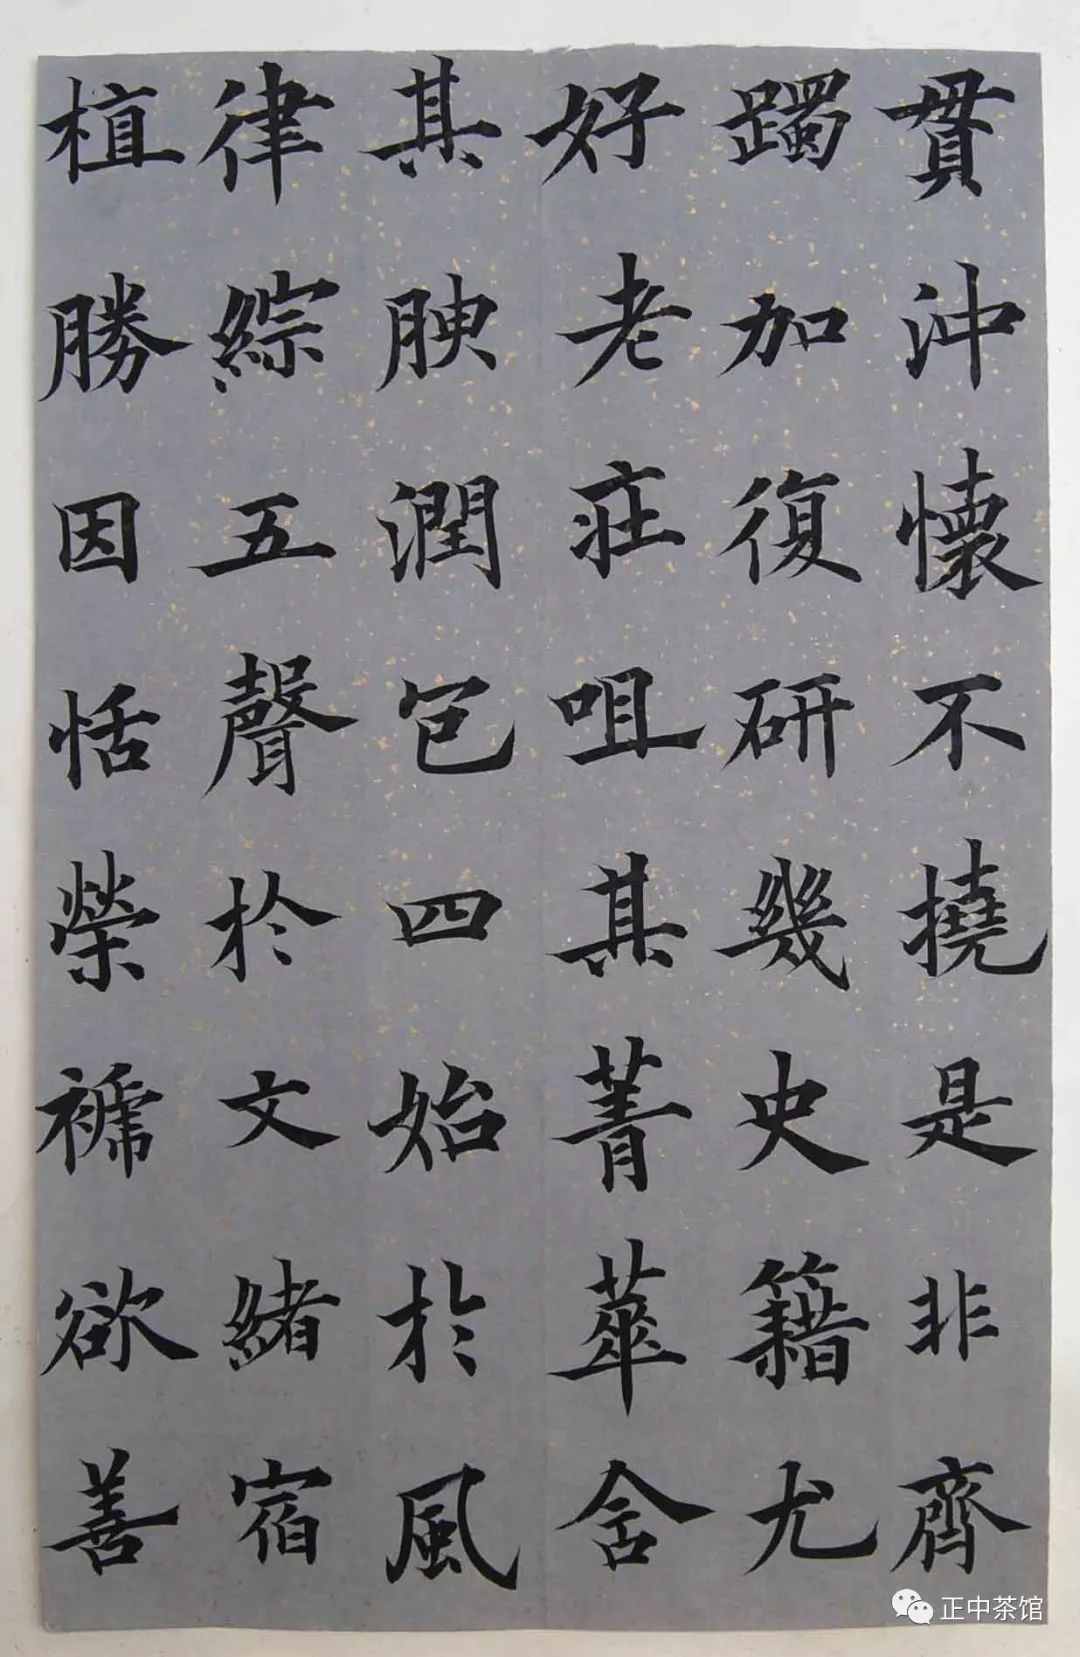 貫沖懷不撓是非齊
躅加復研幾史籍尤
好老莊咀其菁華舍
其腴潤包四始於風
律綜五聲於文緒宿
植勝因恬榮褫欲善
正中茶馆